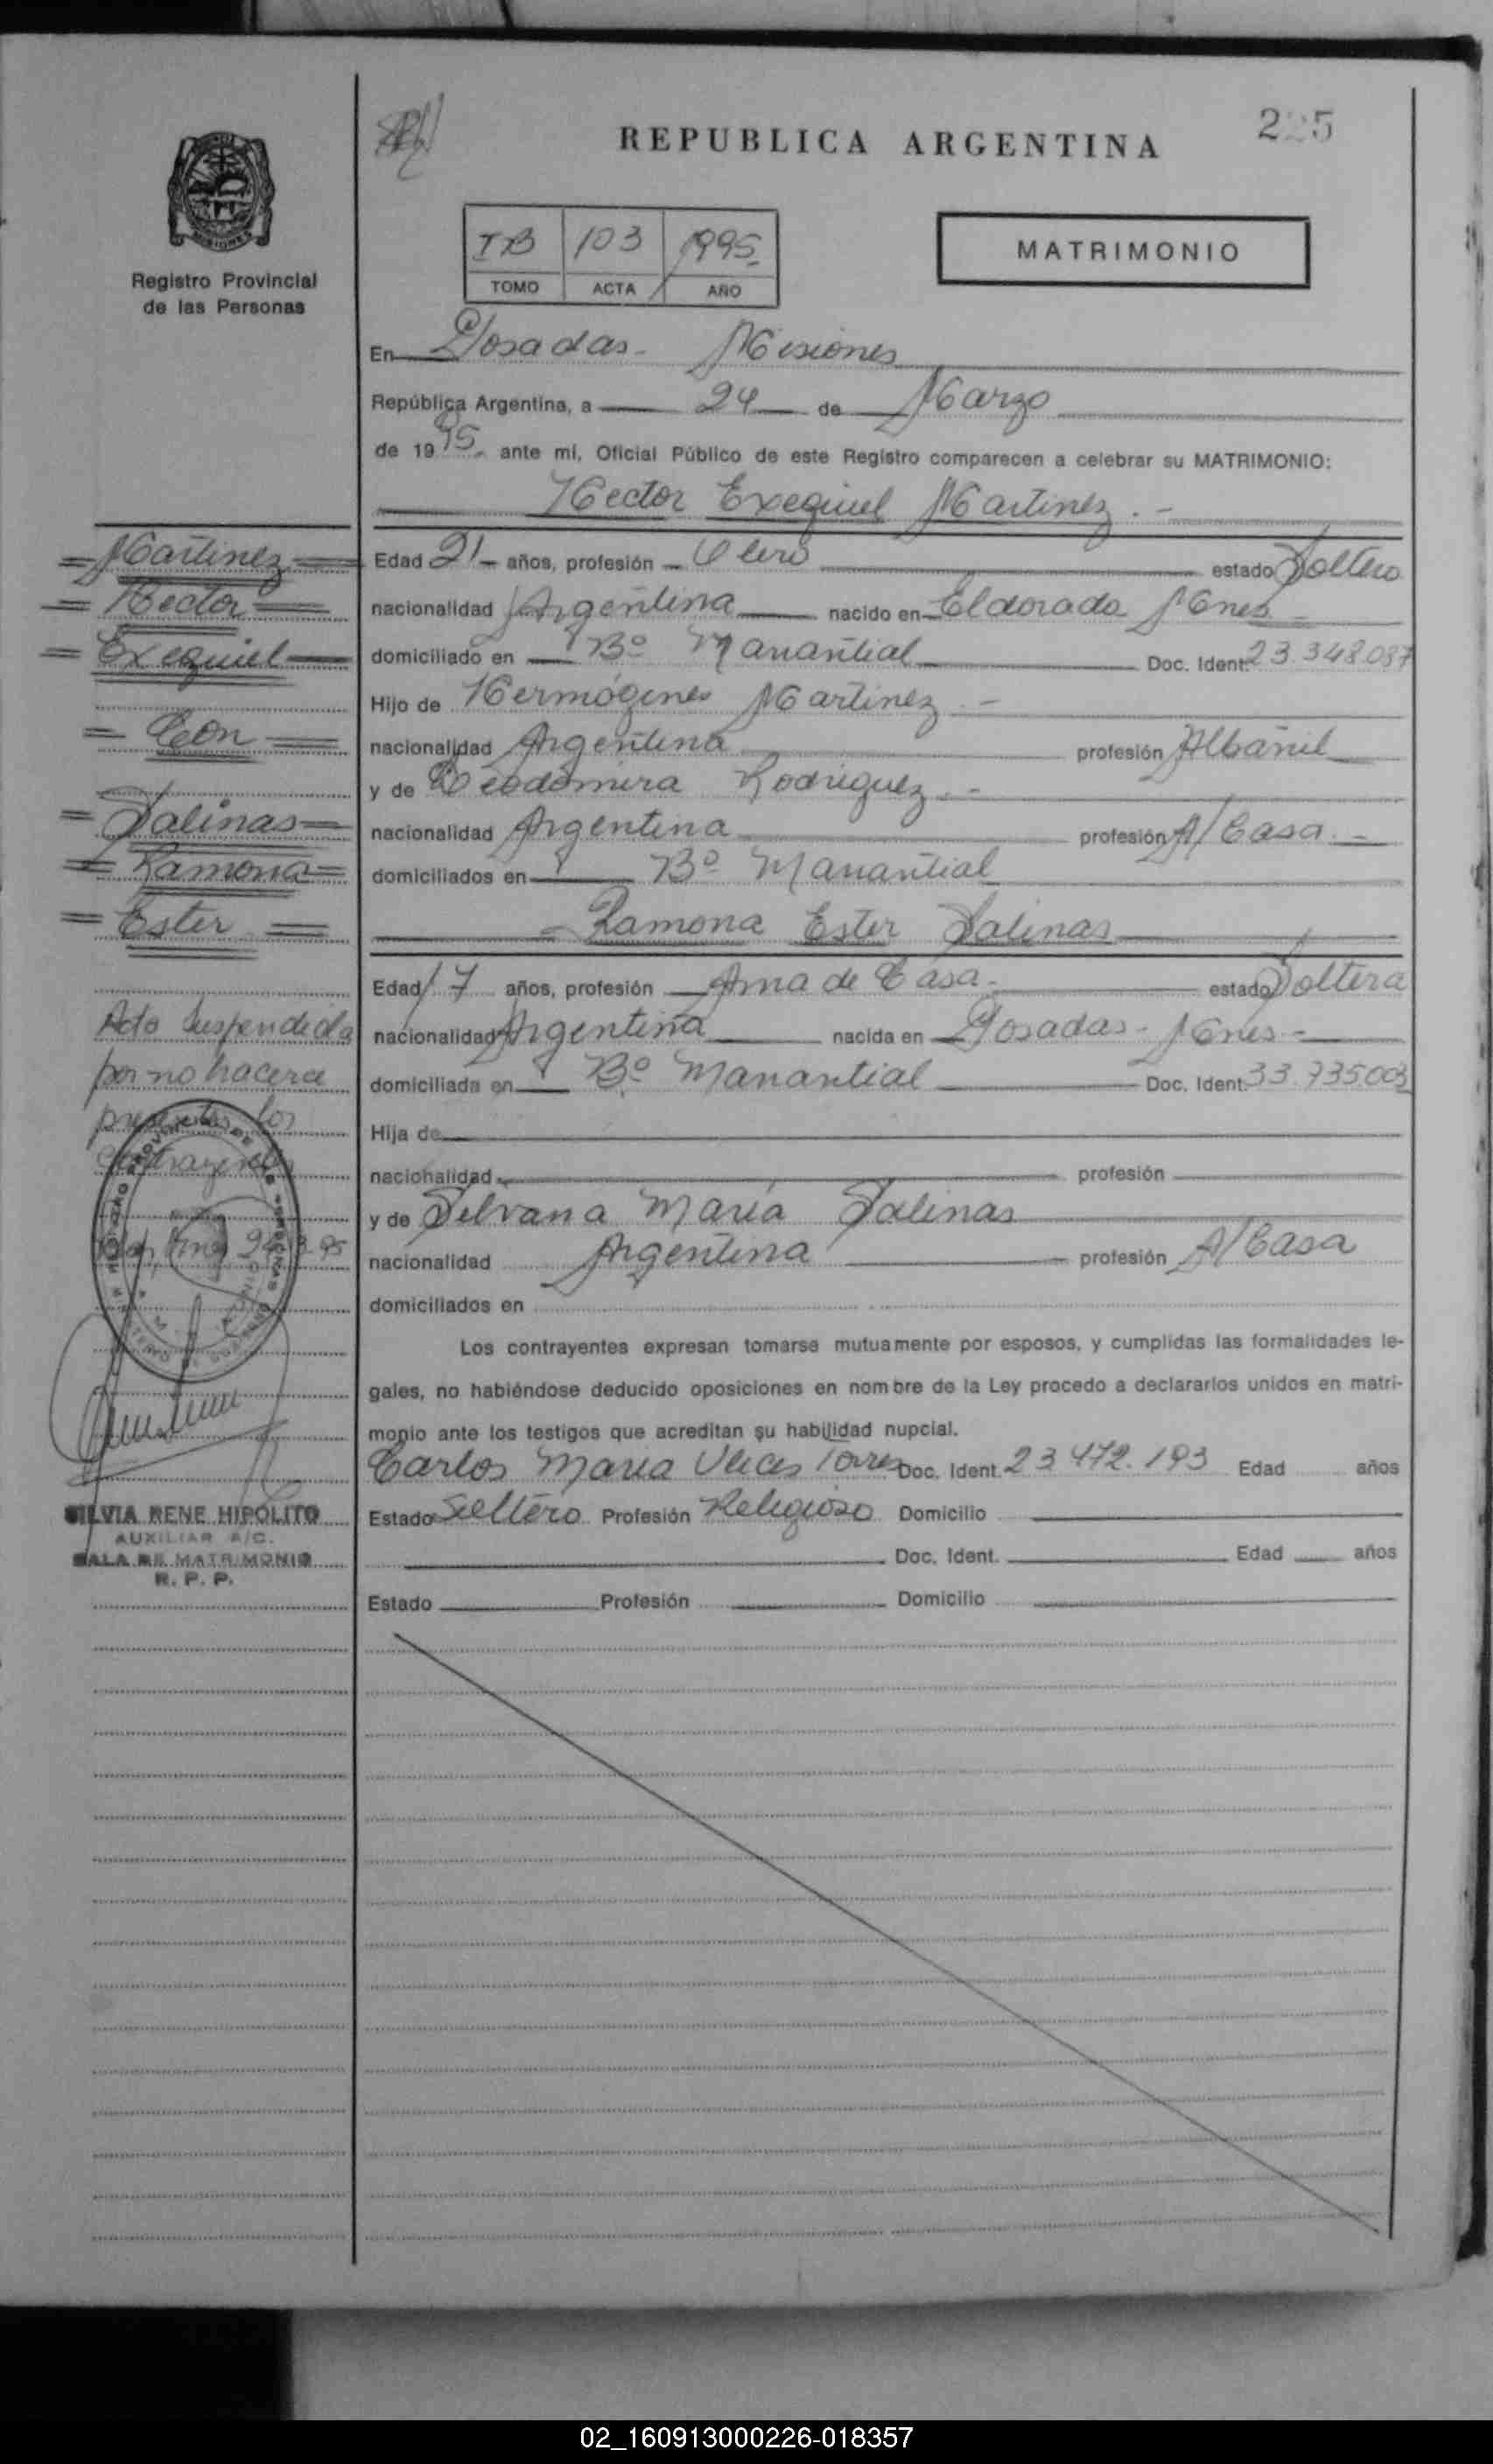 REPUBLICA ARGENTINA
225
MISIONES
Registro Provincial
de las Personas
IB 103 1995
TOMO ACTA AÑO
MATRIMONIO
En Posadas - Misiones
República Argentina, a 24 de Marzo
de 1995 ante mí, Oficial Público de este Registro comparecen a celebrar su MATRIMONIO:
Hector Exequiel Martinez
Edad 21 años, profesión Olero estado Soltero
nacionalidad Argentina nacido en Eldorado Mnes
domiciliado en Bº Manantial Doc. Ident. 23.348.087
Hijo de Hermógenes Martinez
nacionalidad Argentina profesión Albañil
y de Rodriguez
nacionalidad Argentina profesión A/Casa
domiciliados en Bº Manantial
Ramona Ester Salinas
Edad 17 años, profesión Ama de Casa estado Soltera
nacionalidad Argentina nacida en Posadas - Mnes
domiciliada en Bº Manantial Doc. Ident. 33.735.003
Hija de
nacionalidad profesión
y de Silvana María Salinas
nacionalidad Argentina profesión A/Casa
domiciliados en
Los contrayentes expresan tomarse mutuamente por esposos, y cumplidas las formalidades le-
gales, no habiéndose deducido oposiciones en nombre de la Ley procedo a declararlos unidos en matri-
monio ante los testigos que acreditan su habilidad nupcial.
Carlos Maria Torres Doc. Ident. 23.472.193 Edad años
Estado Soltero Profesión Religioso Domicilio
Doc. Ident. Edad años
Estado Profesión Domicilio
= Martinez =
= Hector =
= Exequiel =
= Con =
= Salinas =
= Ramona =
= Ester =
Acto Suspendido
por no hacerce
presentes los
contrayentes
SILVIA RENE HIPOLITO
AUXILIAR A/C.
SALA DE MATRIMONIO
R. P. P.
02_160913000226-018357